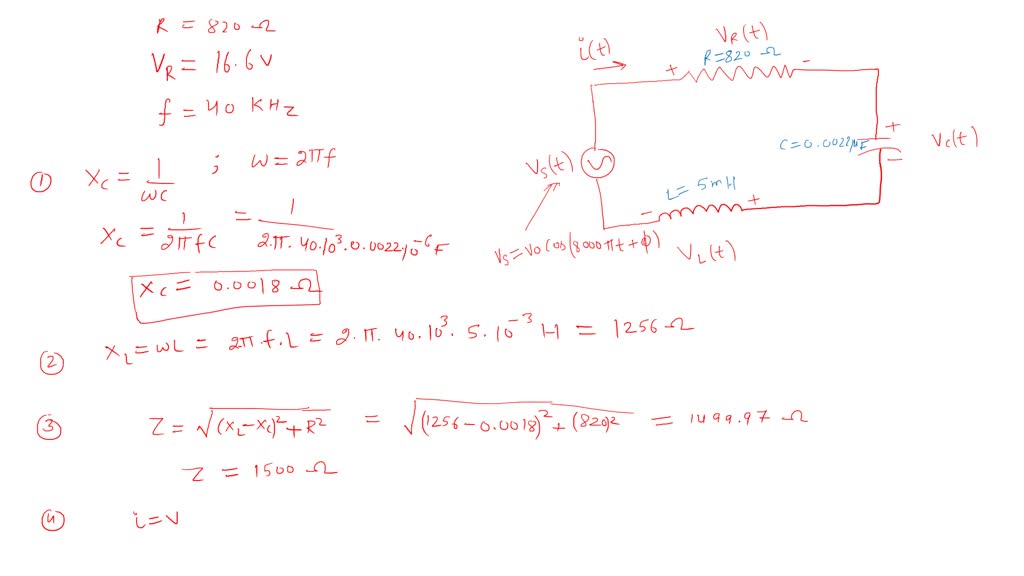 R = 820 Ω
V_R = 16.6 V
f = 40 KHz
① X_C = 1/ωC ; ω = 2πf
X_C = 1/2πfC = 1/2.π.40.10³.0.0022.10⁻⁶F
X_C = 0.0018 Ω
② X_L = ωL = 2π.f.L = 2.π.40.10³.5.10⁻³ H = 1256 Ω
③ Z = √(X_L-X_C)²+R² = √(1256-0.0018)²+(820)² = 1499.97 Ω
Z = 1500 Ω
④ i = V
V_R(t)
i(t)
R=820 Ω
+ -
C=0.0022μF
+
-
V_C(t)
V_S(t)
L = 5mH
- +
V_S = V0 Cos(8000πt+φ)
V_L(t)